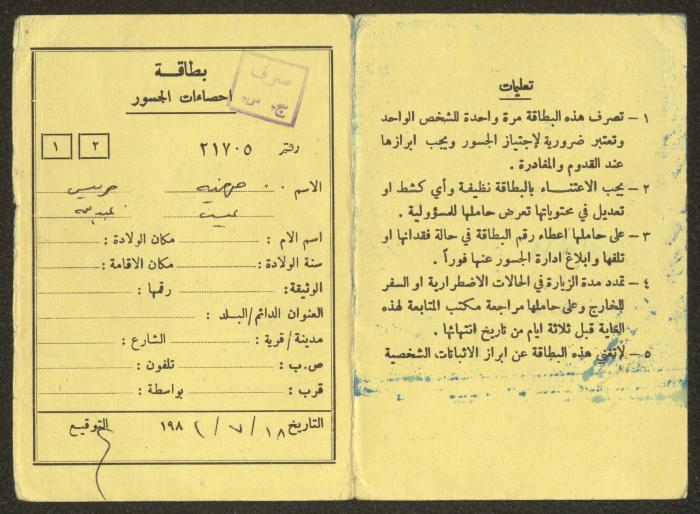 بطاقة
احصاءات الجسور
صرف
ج. س.
١ ٢
رقم ٢١٧٠٥
الاسم
اسم الام : مكان الولادة :
سنة الولادة : مكان الاقامة :
الوثيقة : رقمها :
العنوان الدائم/البلد :
مدينة/قرية : الشارع :
ص.ب : تلفون :
قرب : بواسطة :
التاريخ ١٨ / ٧ / ١٩٨٢ التوقيع
تعليمات
١ – تصرف هذه البطاقة مرة واحدة للشخص الواحد
وتعتبر ضرورية لإجتياز الجسور ويجب ابرازها
عند القدوم والمغادرة .
٢ – يجب الاعتناء بالبطاقة نظيفة وأي كشط او
تعديل في محتوياتها تعرض حاملها للمسؤولية .
٣ – على حاملها اعطاء رقم البطاقة في حالة فقدانها او
تلفها وابلاغ ادارة الجسور عنها فوراً .
٤ – تمدد مدة الزيارة في الحالات الاضطرارية او السفر
للخارج وعلى حاملها مراجعة مكتب المتابعة لهذه
الغاية قبل ثلاثة ايام من تاريخ انتهائها .
٥ – لاتغني هذه البطاقة عن ابراز الاثباتات الشخصية